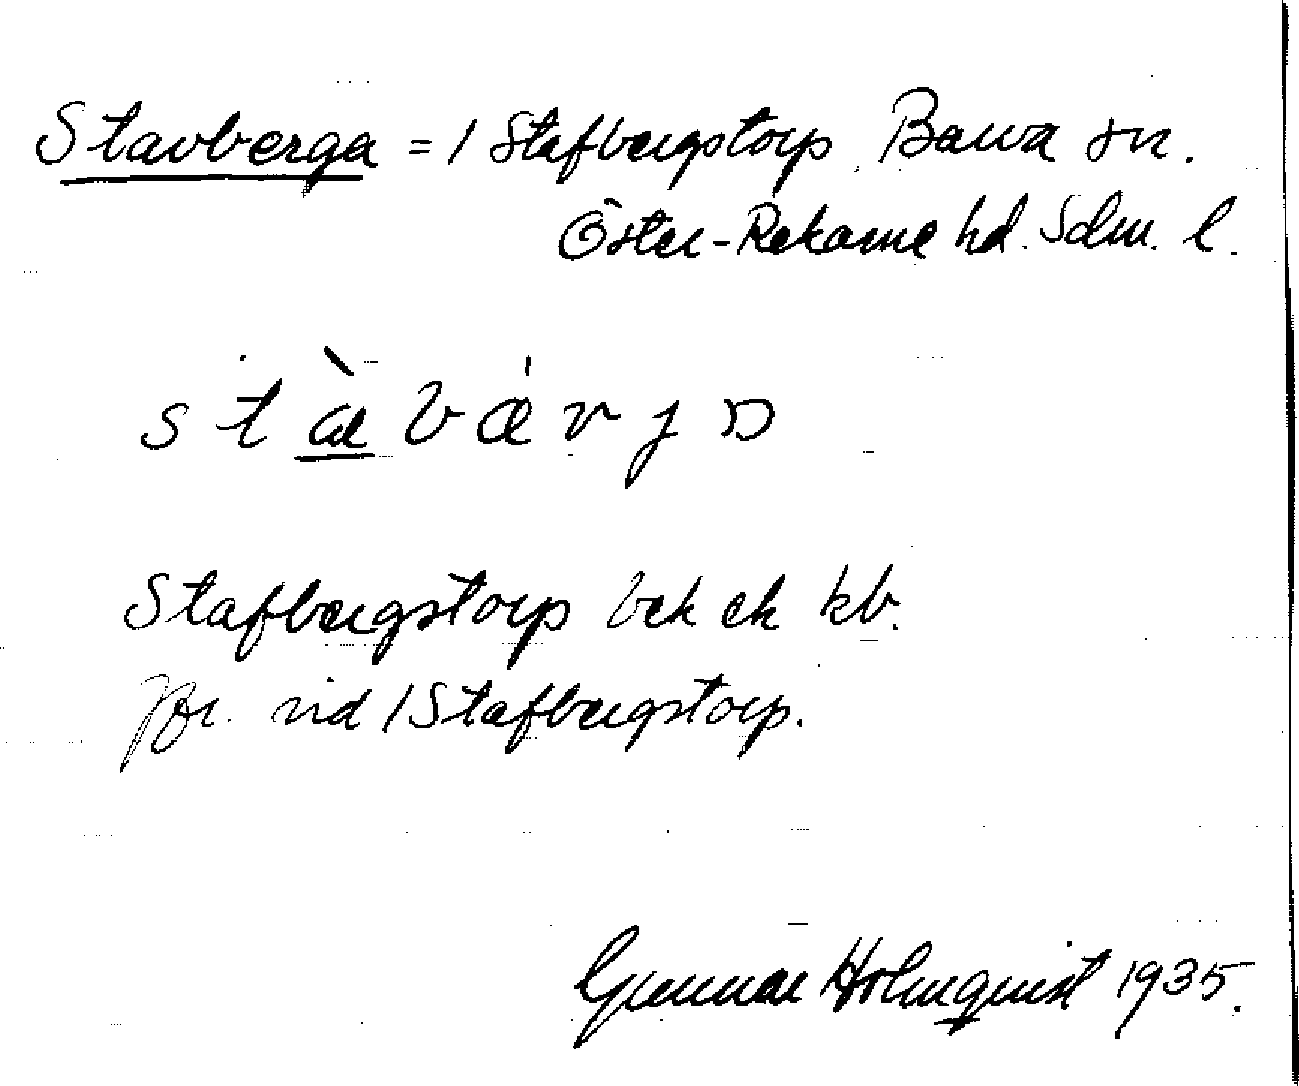 Stavberga = / Stafbergstorp, Barva sn.
Öster-Rekarne hd. Sdm. l.
Stafbergstorp bek ek kb.
Jfr. vid / Stafbergstorp.
Gunnar Holmquist 1935.